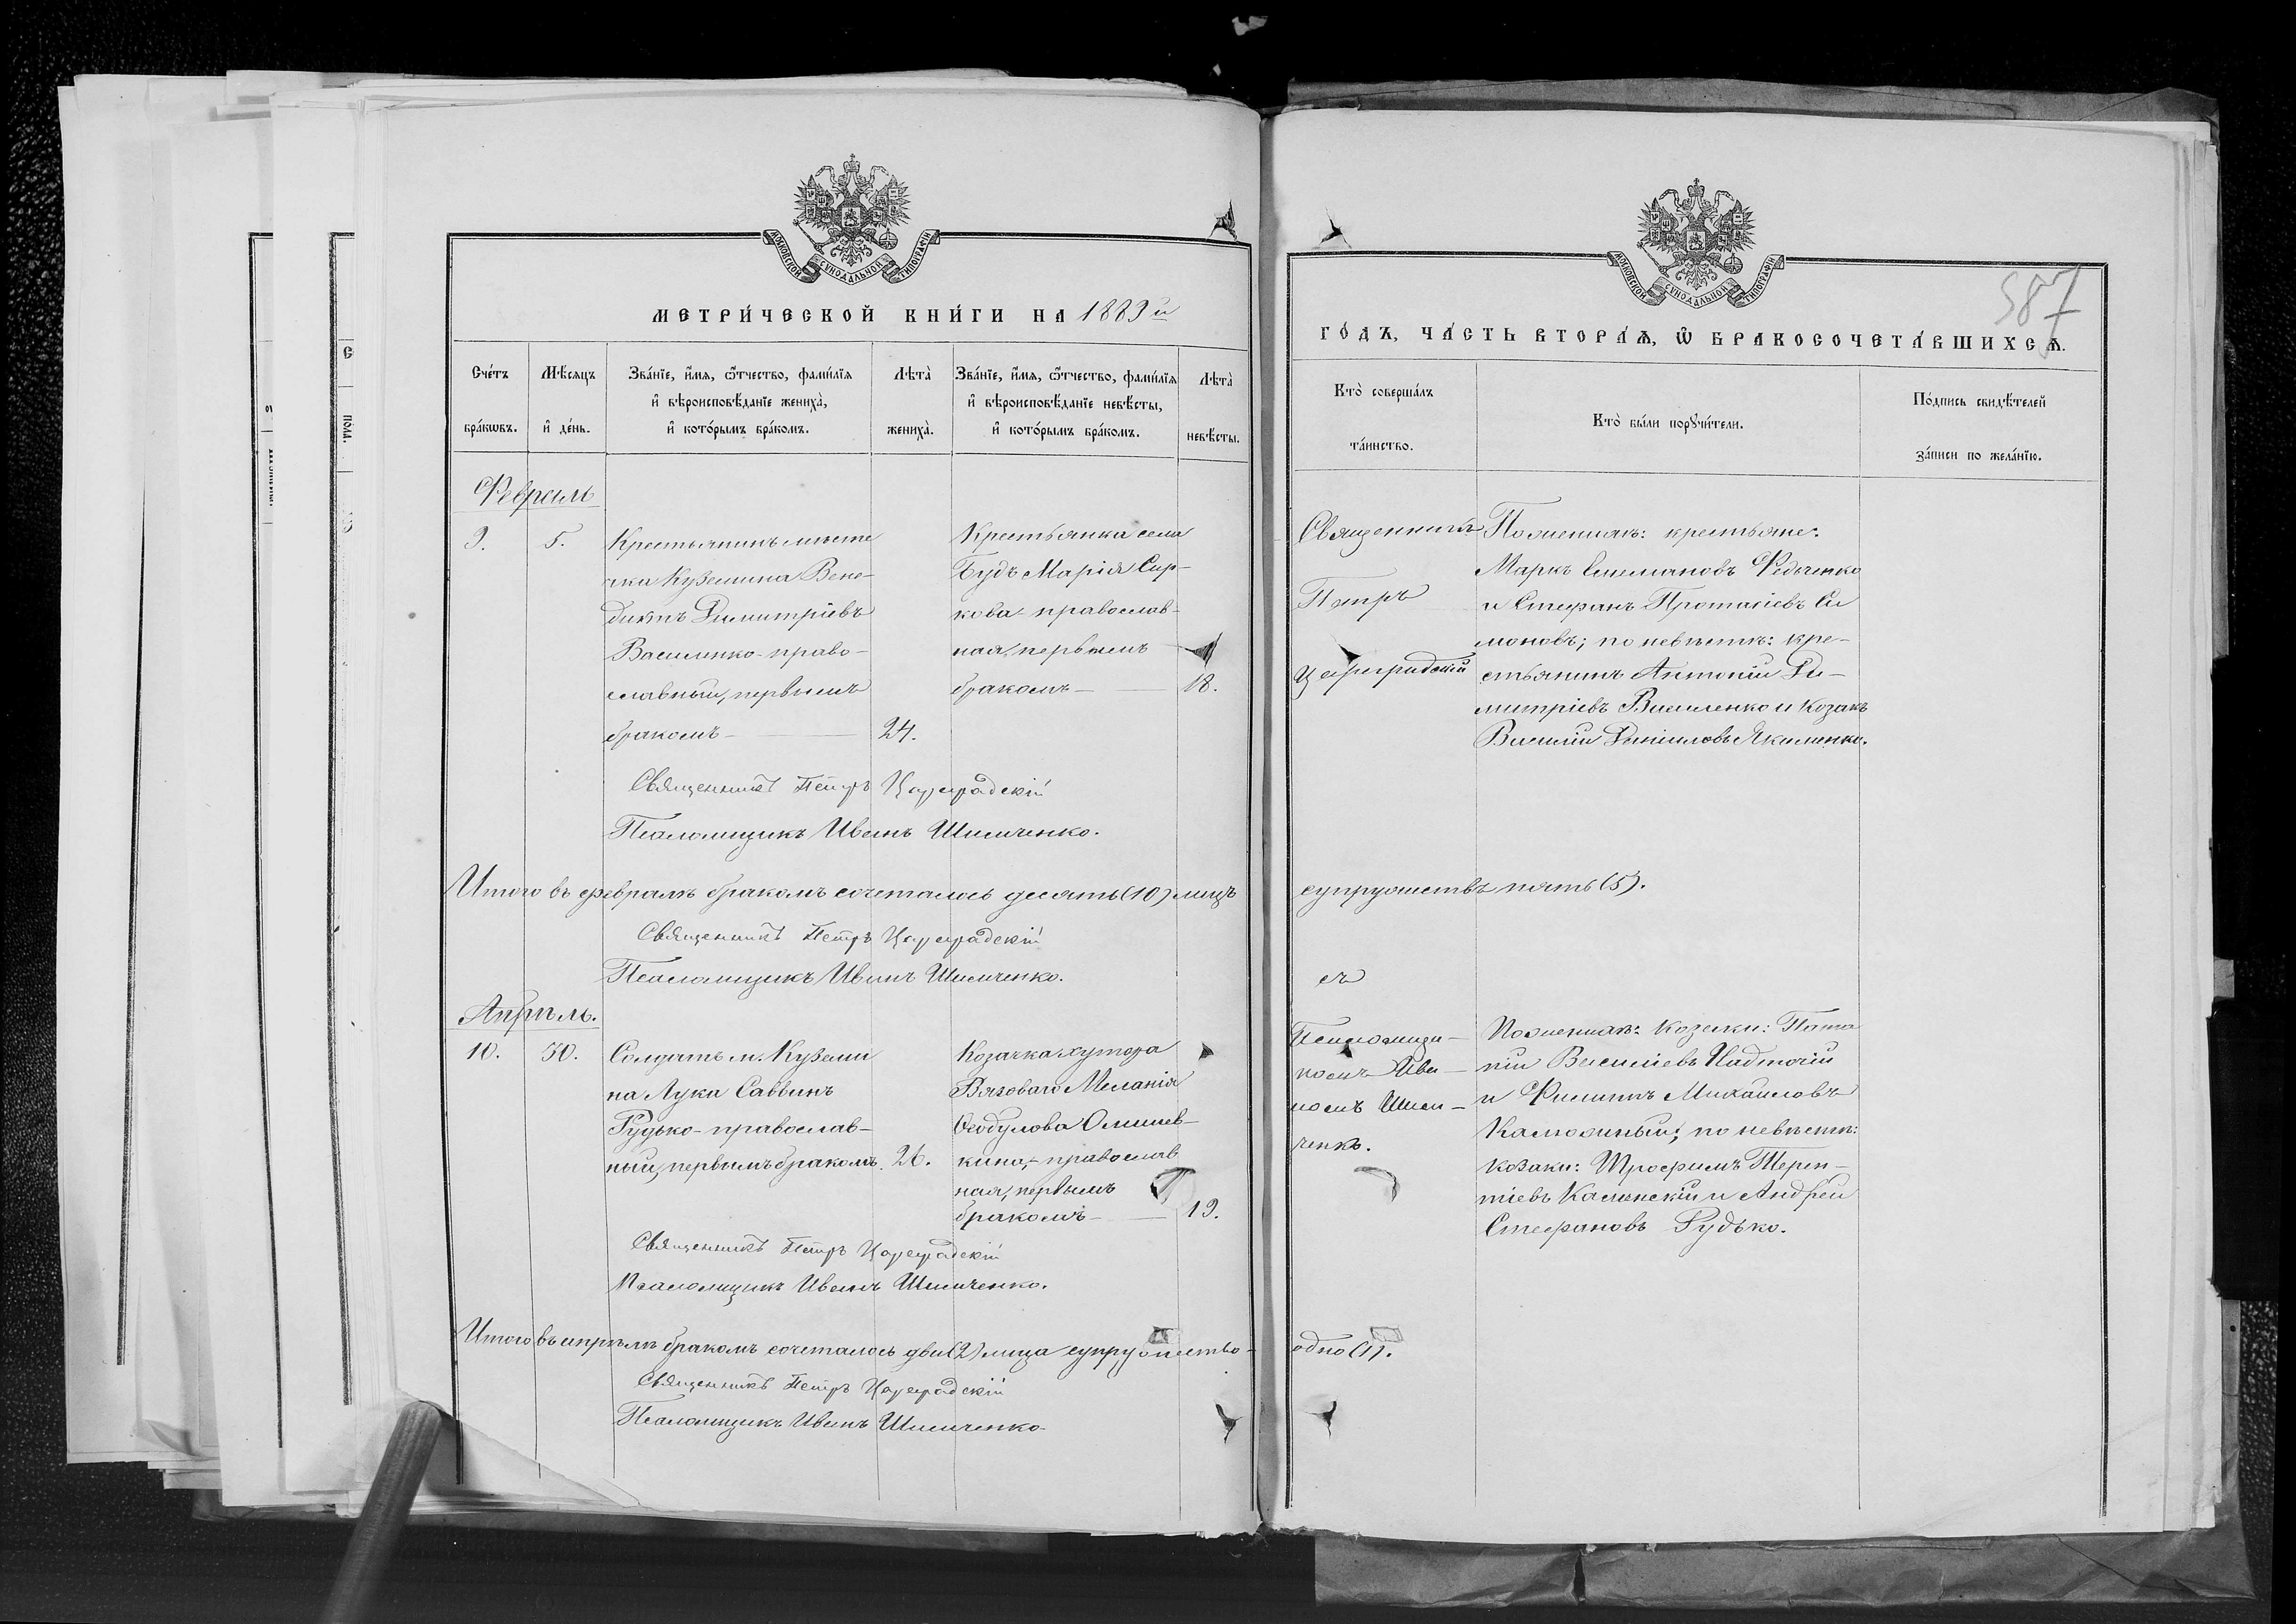 МОСКОВСКОЙ СѴНОДАЛЬНОЙ ТИПОГРАФІИ
МЕТРИ́ЧЕСКОЙ КНИ́ГИ НА 1889й
Сче́тъ бра́кѡвъ.
Мѣ́сяцъ и҆ де́нь.
Зва́нїе, и҆́мѧ, ѻ҆́тчество, фами́лїѧ
и҆ вѣроисповѣ́данїе жениха̀,
и҆ кото́рымъ бра́комъ.
Лѣта̀ жениха̀.
Зва́нїе, и҆́мѧ, ѻ҆́тчество, фами́лїѧ
и҆ вѣроисповѣ́данїе невѣ́сты,
и҆ кото́рымъ бра́комъ.
Лѣта̀ невѣ́сты.
Февраль
9. 5.
Крестьянинъ мѣсте
чка Куземина Вене-
диктъ Димитріевъ
Василенко - право-
славный, первымъ
бракомъ — 24.
Крестьянка села
Будъ Марія Сир-
кова - православ-
ная, первымъ
бракомъ — 18.
Священникъ Петръ Цареградскій
Псаломщикъ Иванъ Шимченко.
Итого въ февралѣ бракомъ сочеталось десять (10) лицъ
Священникъ Петръ Цареградскій
Псаломщикъ Иванъ Шимченко.
Апрѣль.
10. 30.
Солдатъ м. Куземи
на Лука Саввинъ
Рудько - православ-
ный, первымъ бракомъ. 26.
Козачка хутора
Вязоваго Меланія
Ѳеодулова
кина, - православ
ная, первымъ
бракомъ — 19.
Священникъ Петръ Цареградскій
Псаломщикъ Иванъ Шимченко.
Итого въ апрѣлѣ бракомъ сочеталось два (2) лица супружество -
Священникъ Петръ Цареградскій
Псаломщикъ Иванъ Шимченко
МОСКОВСКОЙ СѴНОДАЛЬНОЙ ТИПОГРАФІИ
587
ГО́ДЪ, ЧА́СТЬ ВТОРА́Ѧ, Ѽ БРАКОСОЧЕТА́ВШИХСѦ.
Кто̀ соверша́лъ
та́инство.
Кто̀ бы́ли порꙋчи́тели.
По́дпись свидѣ́телей
за́писи по жела́нїю.
Священникъ
Петръ
Цареградскій
По женихѣ: крестьяне:
Маркъ Федченко
и Стефанъ Протасіевъ Си
моновъ; по невѣстѣ: кре-
стьянинъ Антоній Ди-
митріевъ Василенко и козакъ
Василій Даніиловъ Якименко.
супружествъ пять (5).
съ
Псаломщи-
комъ Ива-
номъ Шим-
ченко.
По женихѣ: козаки: Пота
пій Васильевъ Надточій
и Филиппъ Михайловъ
Калюжный; по невѣстѣ:
козаки: Трофимъ Терен-
тіевъ Каменскій и Андрей
Стефановъ Рудько.
одно (1).